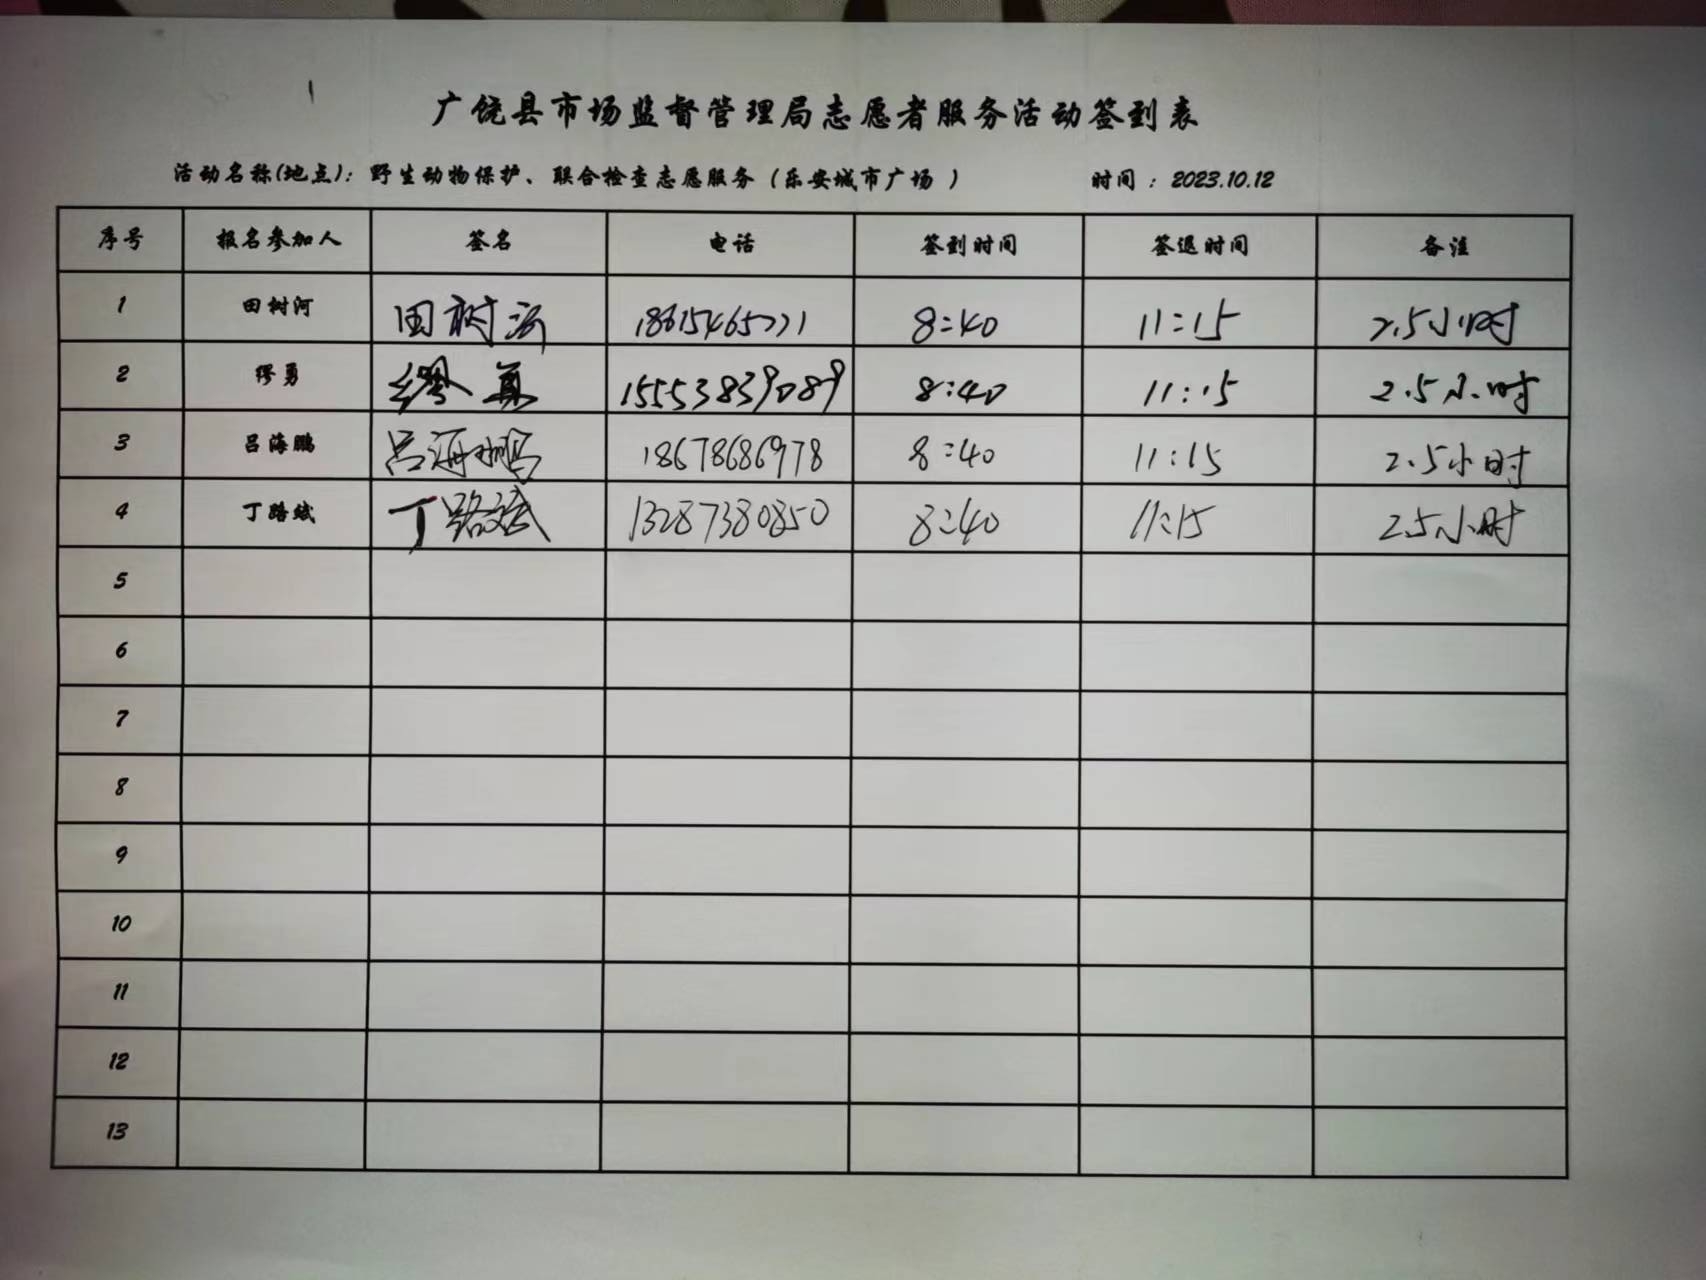 广饶县市场监督管理局志愿者服务活动签到表
活动名称(地点): 野生动物保护、联合检查志愿服务 (乐安城市广场 ) 时间 : 2023.10.12
序号 报名参加人 签名 电话 签到时间 签退时间 备注
1 田树河 田树河 18615465771 8:40 11:15 2.5小时
2 缪勇 缪勇 15553839089 8:40 11:15 2.5小时
3 吕海鹏 吕海鹏 18678686978 8:40 11:15 2.5小时
4 丁路斌 丁路斌 13287380850 8:40 11:15 2.5小时
5
6
7
8
9
10
11
12
13